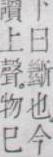 曰斷也今
讀上聲。物已